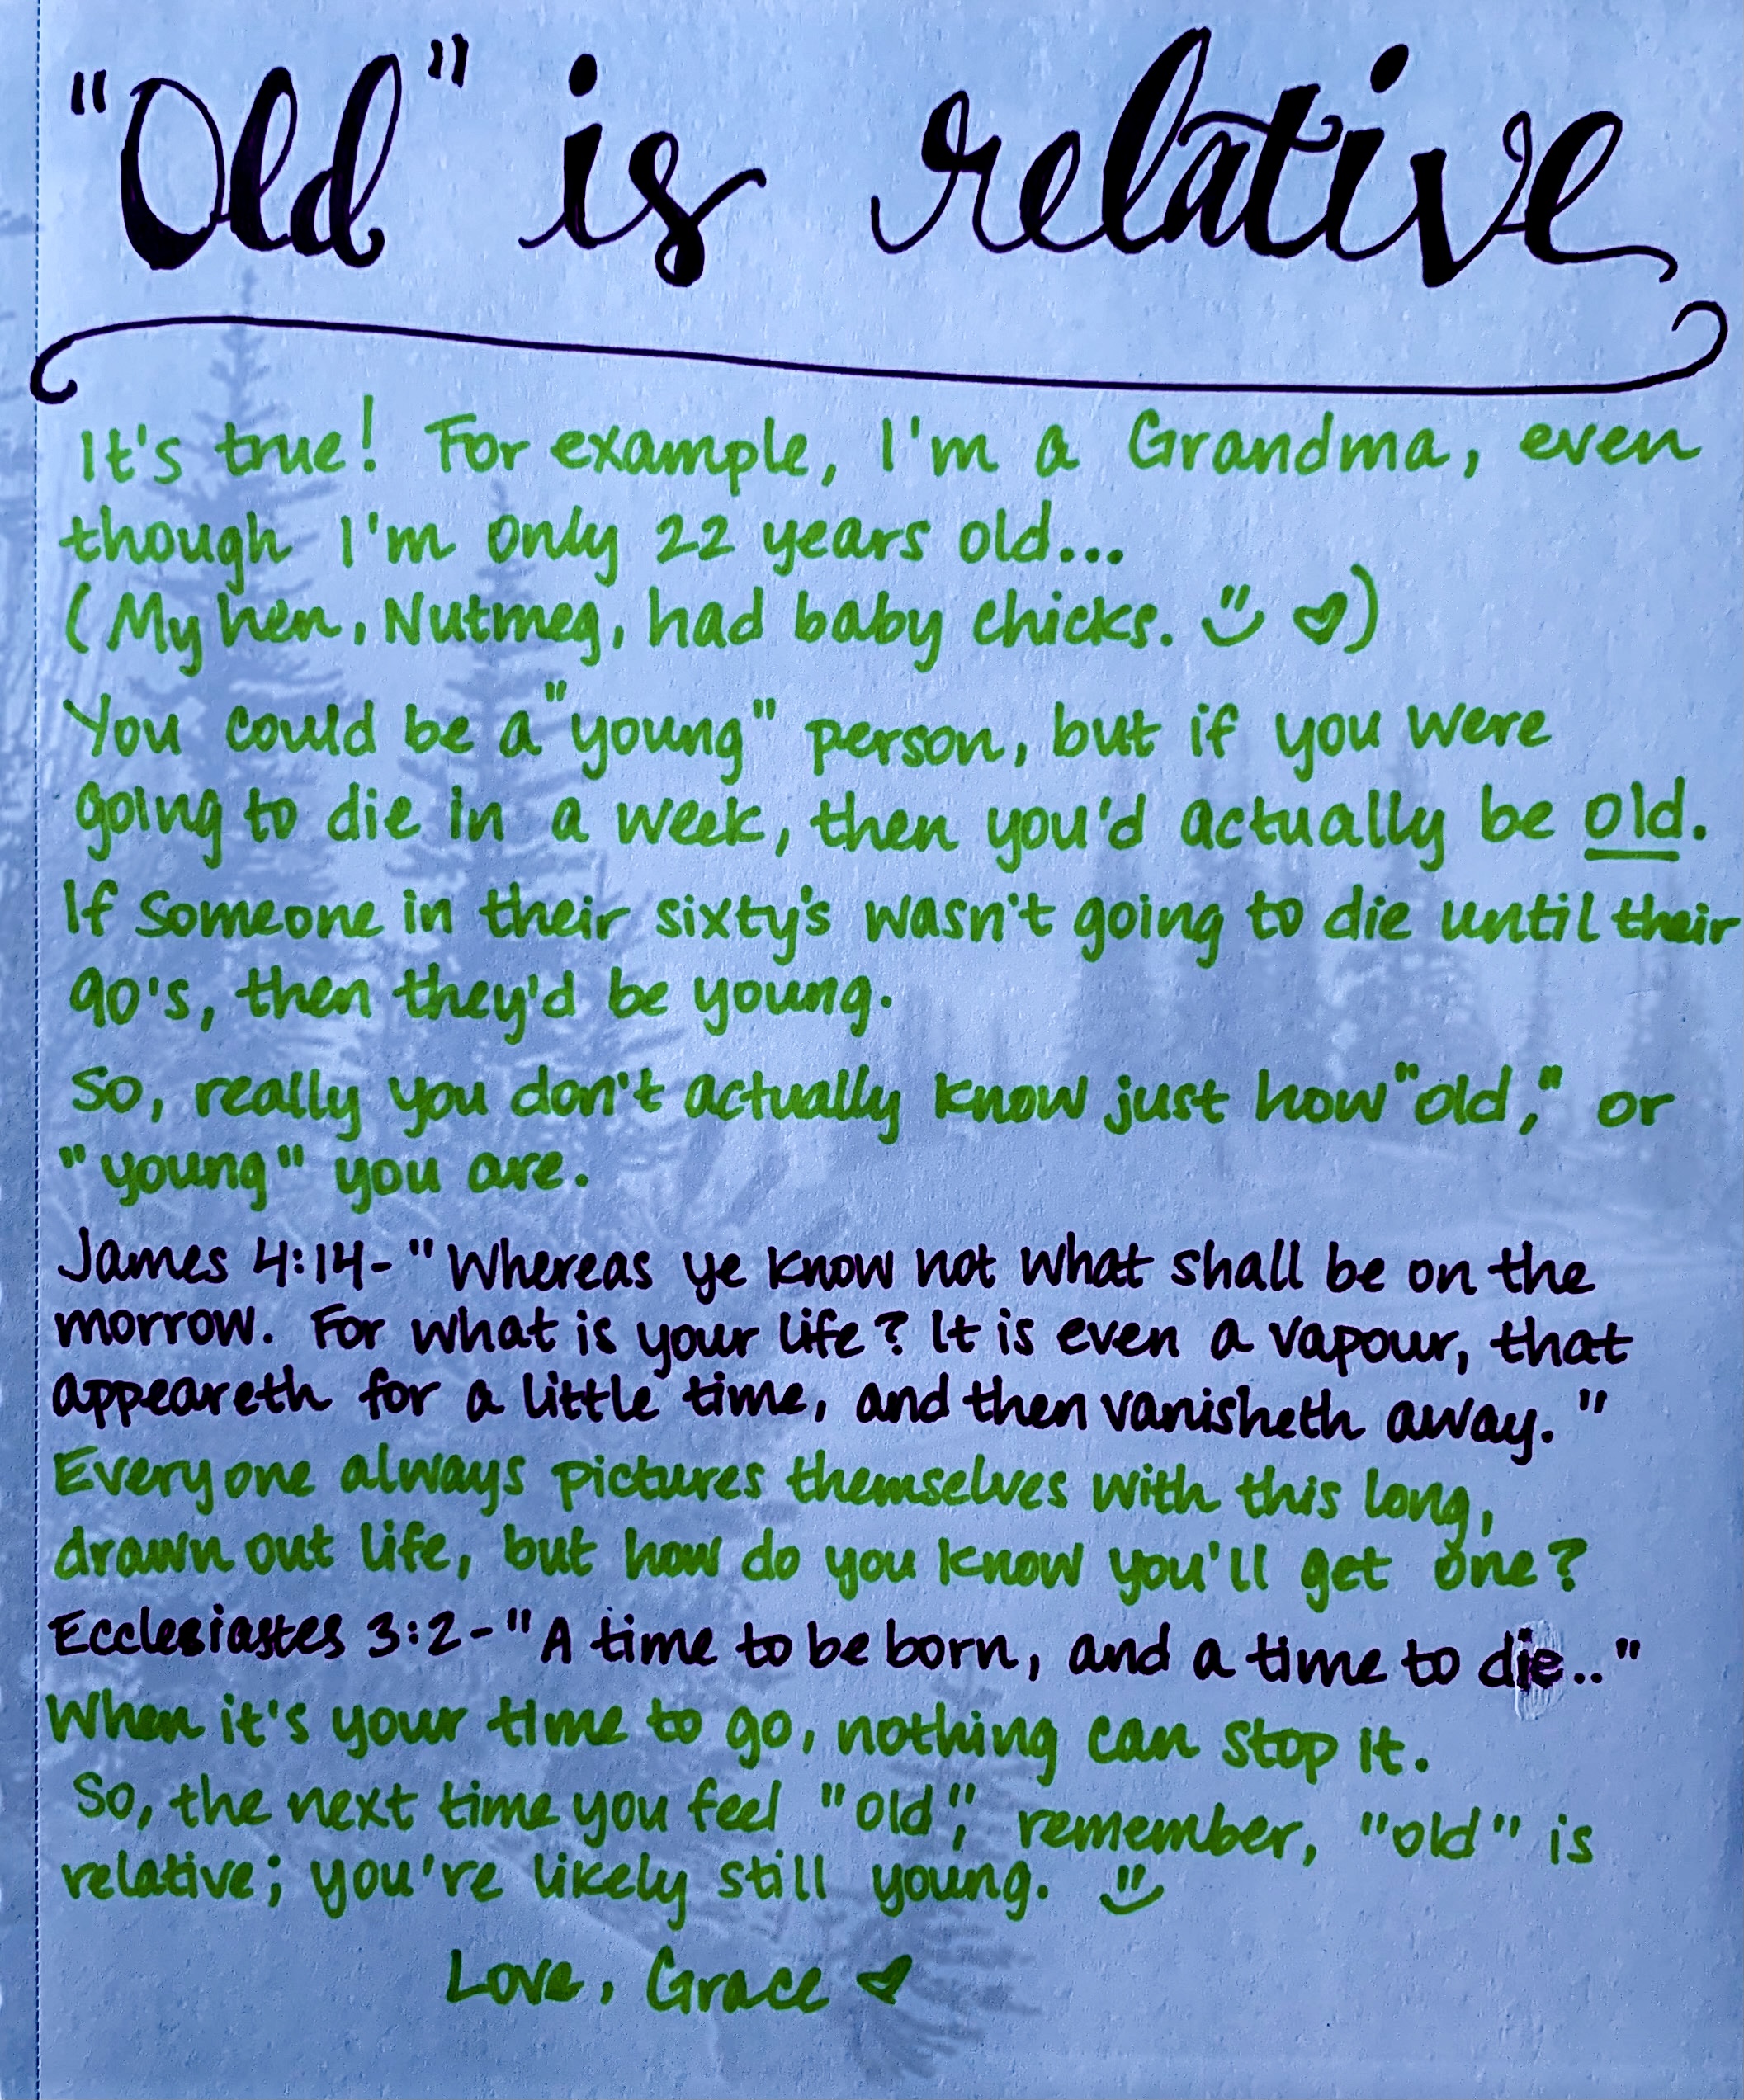 "Old" is relative
It's true! For example, I'm a Grandma, even
though I'm only 22 years old...
(My hen, Nutmeg, had baby chicks. )
You could be a "young" person, but if you were
going to die in a week, then you'd actually be old.
If someone in their sixty's wasn't going to die until their
90's, then they'd be young.
So, really you don't actually know just how "old," or
"young" you are.
James 4:14- "Whereas ye know not what shall be on the
morrow. For what is your life? It is even a vapour, that
appeareth for a little time, and then vanisheth away."
Everyone always pictures themselves with this long,
drawn out life, but how do you know you'll get one?
Ecclesiastes 3:2- "A time to be born, and a time to die.."
When it's your time to go, nothing can stop it.
So, the next time you feel "old", remember, "old" is
relative; you're likely still young.
Love, Grace